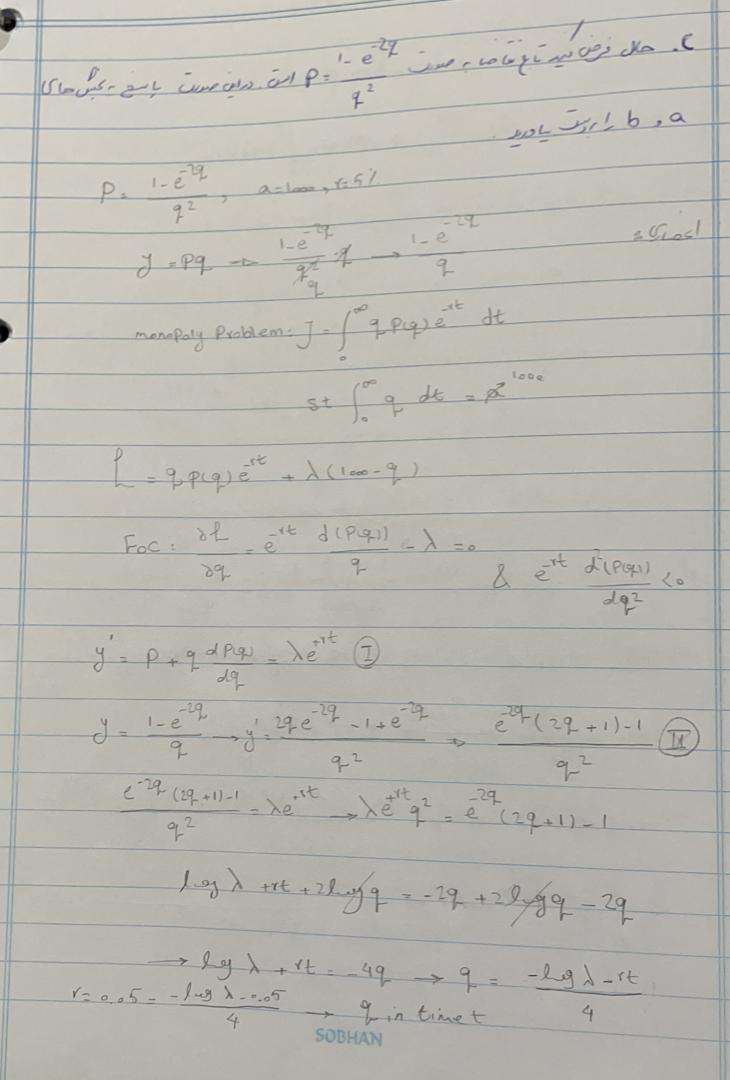 C. حال فرض کنید تابع تقاضا به صورت P = (1 - e^-2q) / q^2 است. در این صورت پاسخ بخش های
a و b را بدست یاورید
P = (1 - e^-2q) / q^2 , a=1000 , r=5%
y = Pq → (1 - e^-2q) / q^2 · q → (1 - e^-2q) / q
monopoly Problem: J = ∫_0^∞ q P(q) e^-rt dt
st ∫_0^∞ q dt = 1000
L = q P(q) e^-rt + λ(1000 - q)
FOC: ∂L/∂q = e^-rt d(P(q))/q - λ = 0
& e^-rt d^2(P(q))/dq^2 < 0
y' = P + q dP(q)/dq = λe^+rt I
y = (1 - e^-2q) / q → y' = (2q e^-2q - 1 + e^-2q) / q^2 ⇒ (e^-2q (2q + 1) - 1) / q^2 II
(e^-2q (2q+1) - 1) / q^2 = λe^+rt → λe^+rt q^2 = e^-2q (2q+1) - 1
log λ + rt + 2log q = -2q + 2log q - 2q
→ log λ + rt = -4q → q = (-log λ - rt) / 4
r = 0.05 - (-log λ - 0.05) / 4 → q in time t
SOBHAN